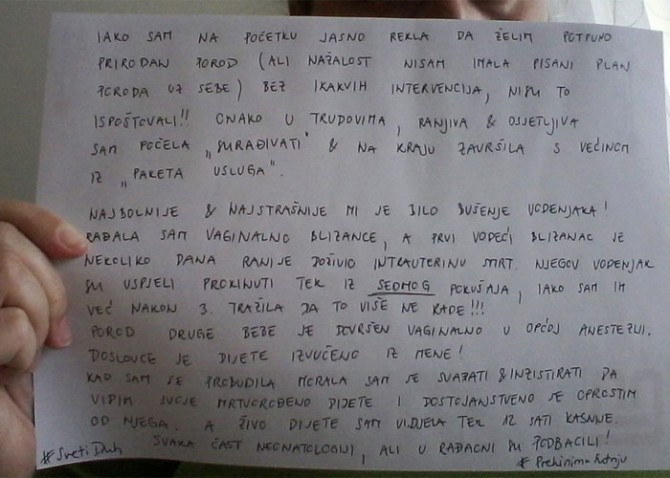 IAKO SAM NA POČETKU JASNO REKLA DA ŽELIM POTPUNO
PRIRODAN POROD (ALI NAŽALOST NISAM IMALA PISANI PLAN
PORODA UZ SEBE) BEZ IKAKVIH INTERVENCIJA, NISU TO
ISPOŠTOVALI!! ONAKO U TRUDOVIMA, RANJIVA & OSJETLJIVA
SAM POČELA „SURAĐIVATI" & NA KRAJU ZAVRŠILA S VEĆINOM
IZ „PAKETA USLUGA".
NAJBOLNIJE & NAJSTRAŠNIJE MI JE BILO BUŠENJE VODENJAKA!
RAĐALA SAM VAGINALNO BLIZANCE, A PRVI VODEĆI BLIZANAC JE
NEKOLIKO DANA RANIJE DOŽIVIO INTRAUTERINU SMRT. NJEGOV VODENJAK
SU USPJELI PROKINUTI TEK IZ SEDMOG POKUŠAJA, IAKO SAM IH
VEĆ NAKON 3. TRAŽILA DA TO VIŠE NE RADE!!!
POROD DRUGE BEBE JE DOVRŠEN VAGINALNO U OPĆOJ ANESTEZIJI.
DOSLOVCE JE DIJETE IZVUČENO IZ MENE!
KAD SAM SE PROBUDILA MORALA SAM SE SVAĐATI & INZISTIRATI DA
VIDIM SVOJE MRTVOROĐENO DIJETE I DOSTOJANSTVENO SE OPROSTIM
OD NJEGA. A ŽIVO DIJETE SAM VIDJELA TEK 12 SATI KASNIJE.
SVAKA ČAST NEONATOLOGIJI, ALI U RAĐAONI SU PODBACILI!
#Sveti Duh
#Prekinimo šutnju